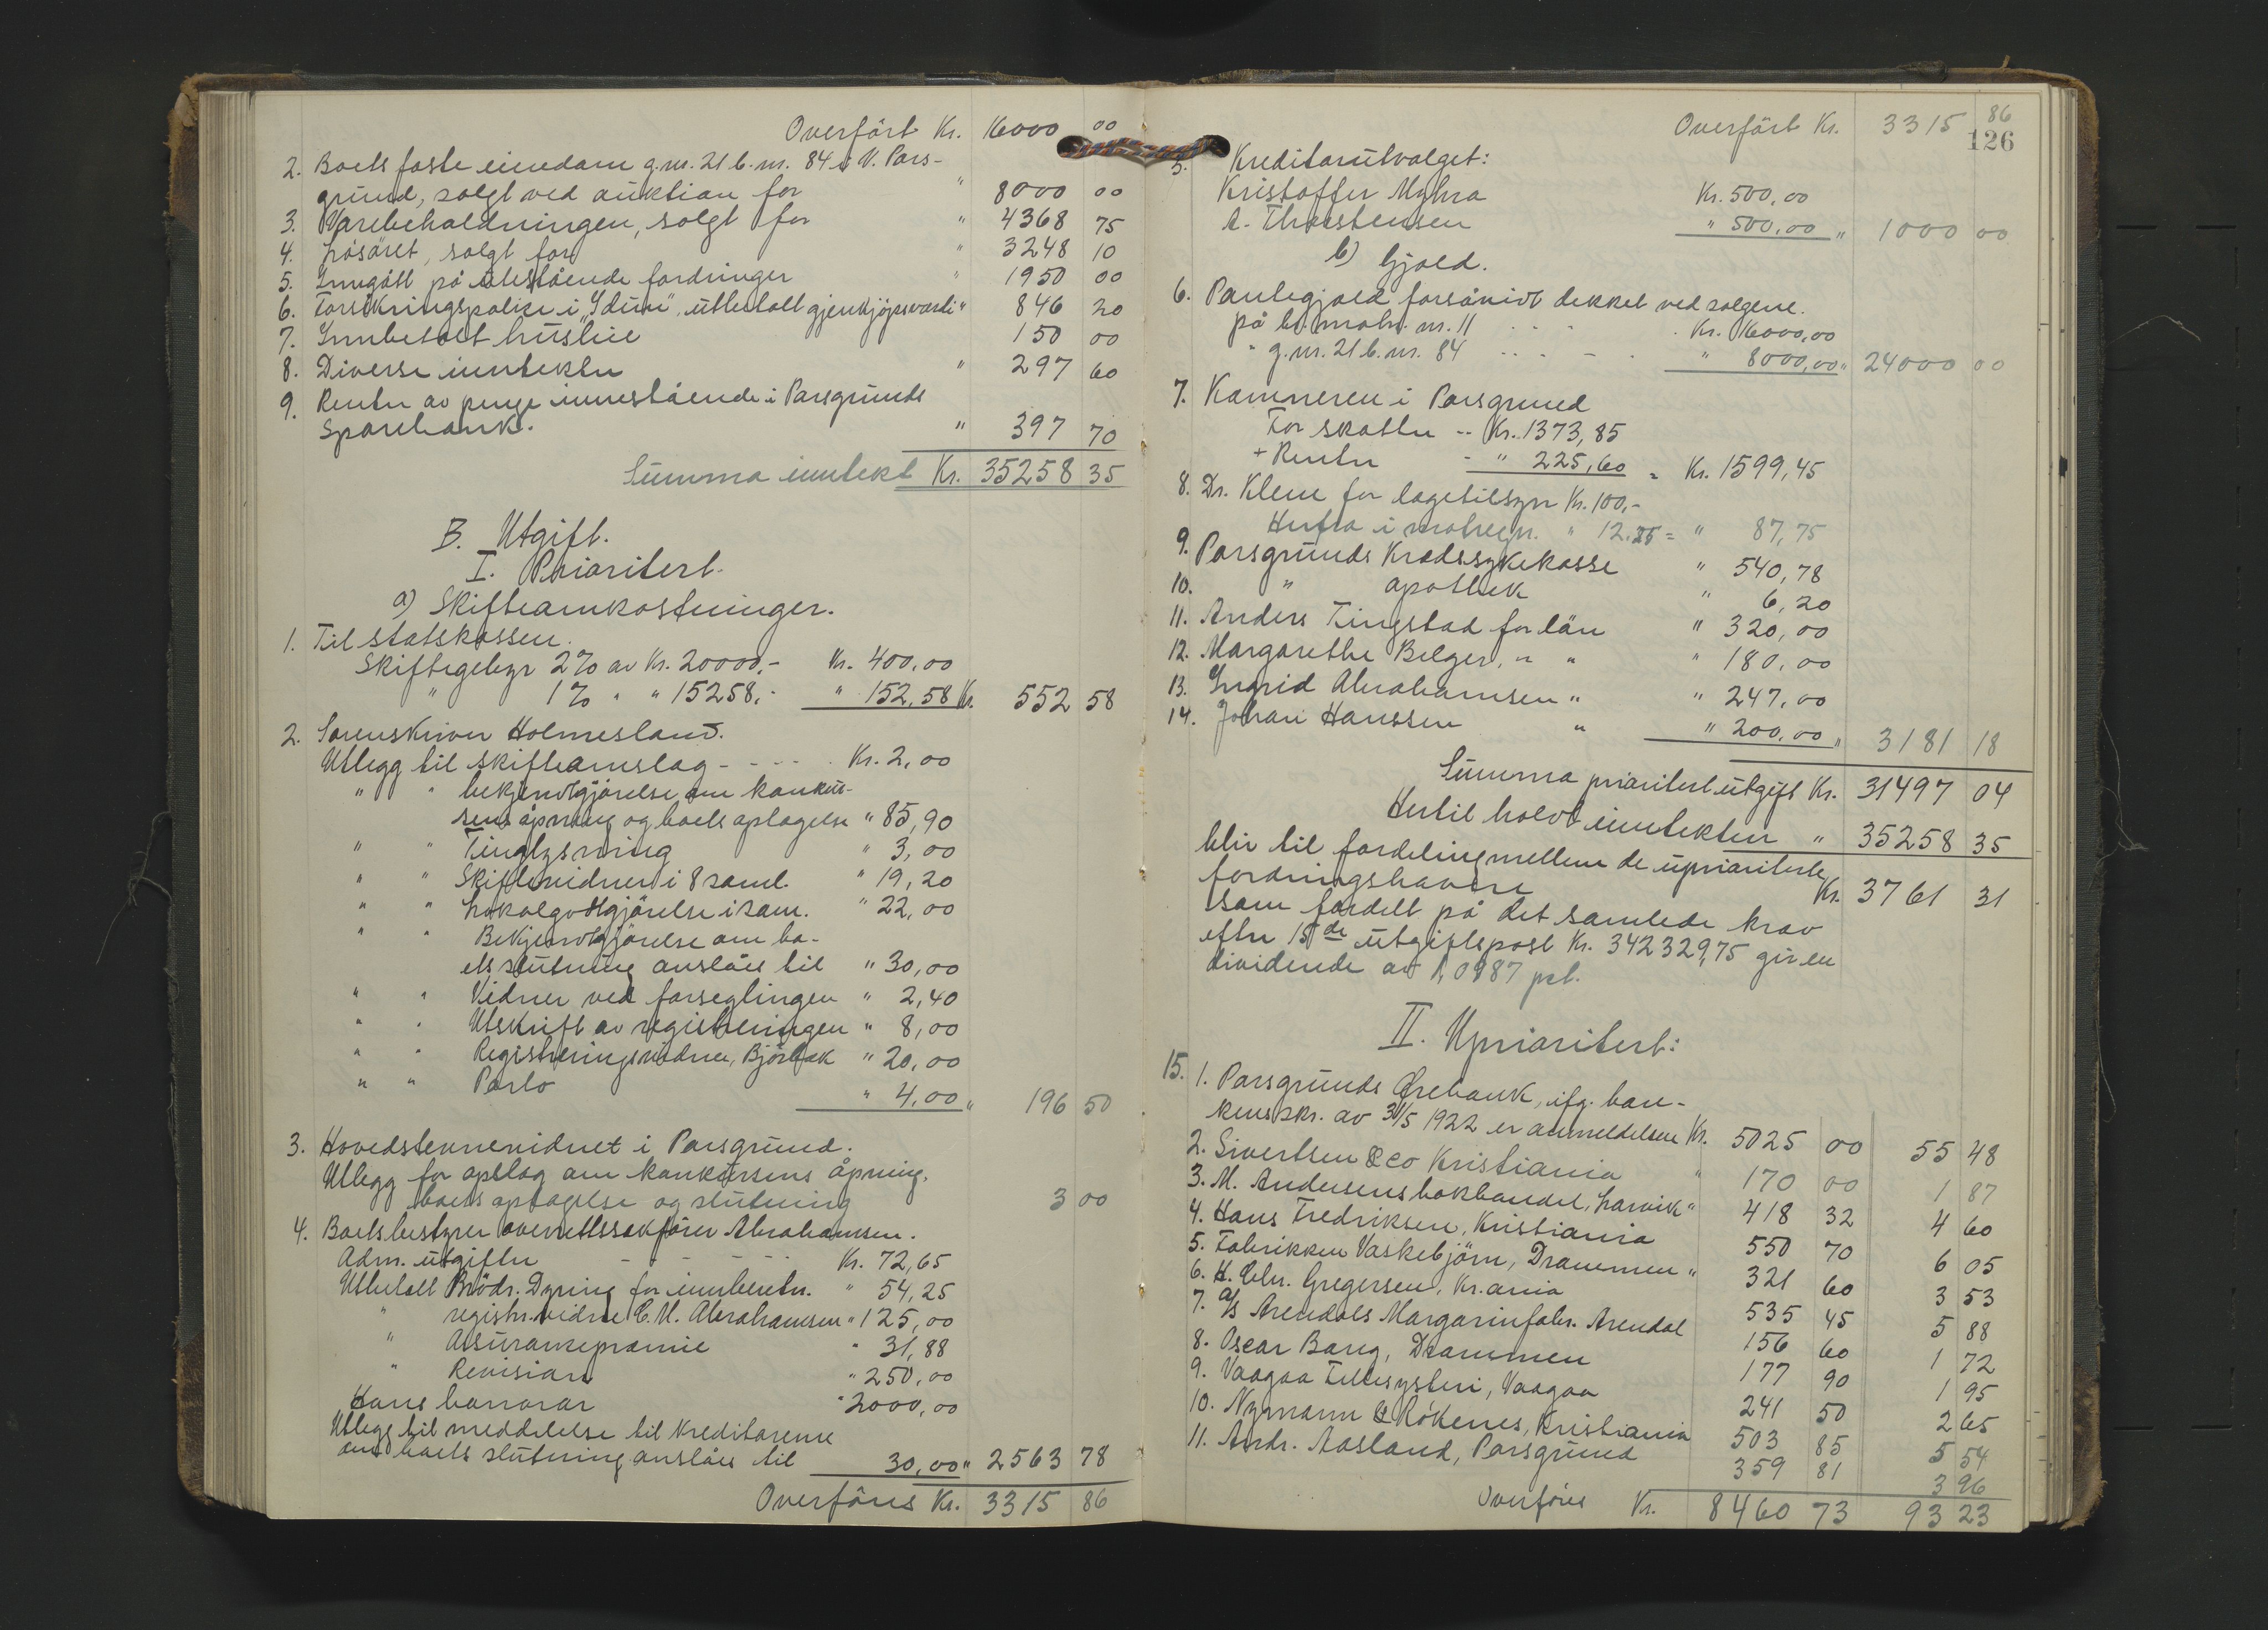 Overført Kr. 16000 00
2. Boets faste eiendom g.nr. 21 b.nr. 84 i V. Pors-
grund, solgt ved auktion for " 8000 00
3. Varebeholdningen, solgt for " 4368 75
4. Løsøret, solgt for " 3248 10
5. Inngått på utestående fordringer " 1950 00
6. Forsikringspolise i "Idun", utbetalt gjenkjöpsverdi " 846 20
7. Innbetalt husleie 150 00
8. Diverse inntekter " 297 60
9. Renter av penge innestående i Porsgrunds
Sparebank. " 397 70
Summa inntekt Kr. 35258 35
B. Utgift.
I. Prioritert.
a) Skifteomkostninger.
1. Til statskassen.
Skiftegebyr 2% av Kr. 20000,- Kr. 400,00
" 1% " " 15258,- " 152,58 Kr. 552 58
2. Sorenskriver Holmesland.
Utlegg til skifteomslag - - - - Kr. 2,00
" " bekjentgjörelse om konkur-
sens åpning og boets optagelse " 85,90
" " Tinglysning " 3,00
" " Skiftevidner i 8 saml. " 19,20
" " Lokalgodtgjörelse i sam. " 22,00
" " Bekjentgjörelse om bo-
ets slutning anslåes til " 30,00
" " Vidner ved forseglingen " 2,40
" " Utskrift av registreringen " 8,00
" " Registreringsvidne, Björbæk " 20,00
" " Porto " 4,00 " 196 50
3. Hovedstevnevidnet i Porsgrund.
Utlegg for opslag om konkursens åpning,
boets optagelse og slutning 3 00
4. Boets bestyrer overrettssakförer Abrahamsen.
Adm. utgifter - - - - Kr. 72,65
Utbetalt Brödr. Dyring for innberetn. " 54,25
" registr. vidne C. M. Abrahamsen " 125,00
" Assurancepremie " 31,88
" Revision " 250,00
Hans honorar " 2000,00
Utlegg til meddelelse til Kreditorerne
om boets slutning anslåes til 30,00 " 2563 78
Overföres Kr. 3315 86
126
Overfört Kr. 3315 86
5. Kreditorutvalget:
Kristoffer Myhra Kr. 500,00
A. Thorstensen " 500,00 " 1000 00
b) Gjæld.
6. Pantegjæld forsåvidt dekket ved salgene.
på br. matr. nr. 11 . . . Kr. 16000,00
" g.nr. 21 b.nr. 84 . . . " 8000,00 " 24000 00
7. Kæmneren i Porsgrund
For skatter -- Kr. 1373,85
+ Renter - " 225,60 = Kr. 1599,45
8. Dr. Klem for lægetilsyn Kr. 100,-
Herfra i motregn. " 12.25 = " 87,75
9. Porsgrunds Kredssykekasse " 540,78
10. " apothek " 6,20
11. Anders Tingstad for lån " 320,00
12. Margarethe Belger, " " " 180,00
13. Ingrid Abrahamsen " " 247,00
14. Johan Hanssen " " 200,00 " 3181 18
Summa prioritert utgift Kr. 31497 04
Hertil holdt inntekten " 35258 35
blir til fordeling mellem de uprioriterte
fordringshavere Kr. 3761 31
som fordelt på det samlede krav
efter 15de utgiftspost Kr. 342329,75 gir en
dividende av 1,0987 pct.
II. Uprioritert:
15. 1. Porsgrunds Örebank, ifg. ban-
kens skr. av 31/5 1922 er anmeldelsen Kr. 5025 00 55 48
2. Sivertsen & Co Kristiania " 170 00 1 87
3. M. Andersens bokhandel, Larvik " 418 32 4 60
4. Hans Fredriksen, Kristiania 550 70 6 05
5. Fabrikken Vaskebjörn, Drammen " 321 60 3 53
6. H. Chr. Gregersen, Kr.ania 535 45 5 88
7. A/S Arendals Margarinfabr. Arendal 156 60 1 72
8. Oscar Bang, Drammen 177 90 1 95
9. Vaagaa Fellesysteri, Vaagaa 241 50 2 65
10. Nymann & Rökenes, Kristiania 503 85 5 54
11. Andr. Aasland, Porsgrund 359 81 3 96
Overföres Kr. 8460 73 93 23